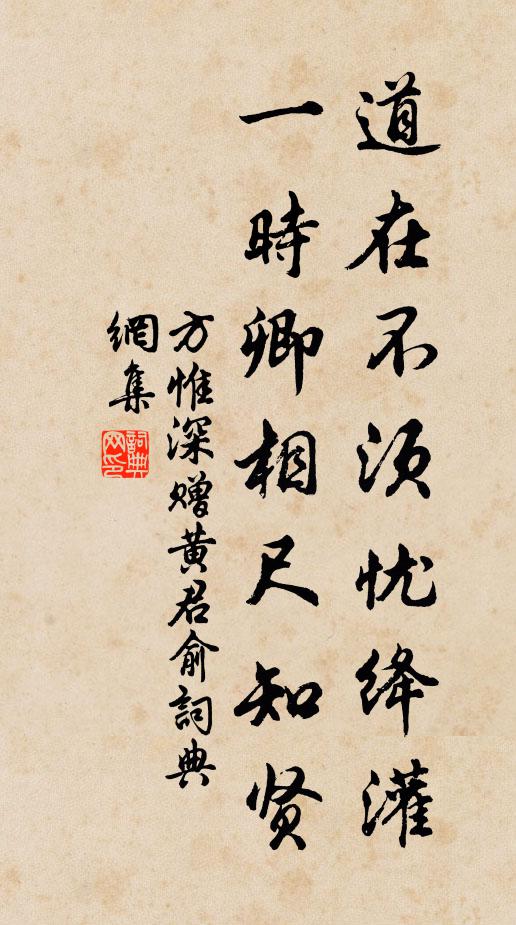 道在不须忧绛灌
一時卿相尺知贤
方惟深赠黄君俞詞典
網集
詞典
网印